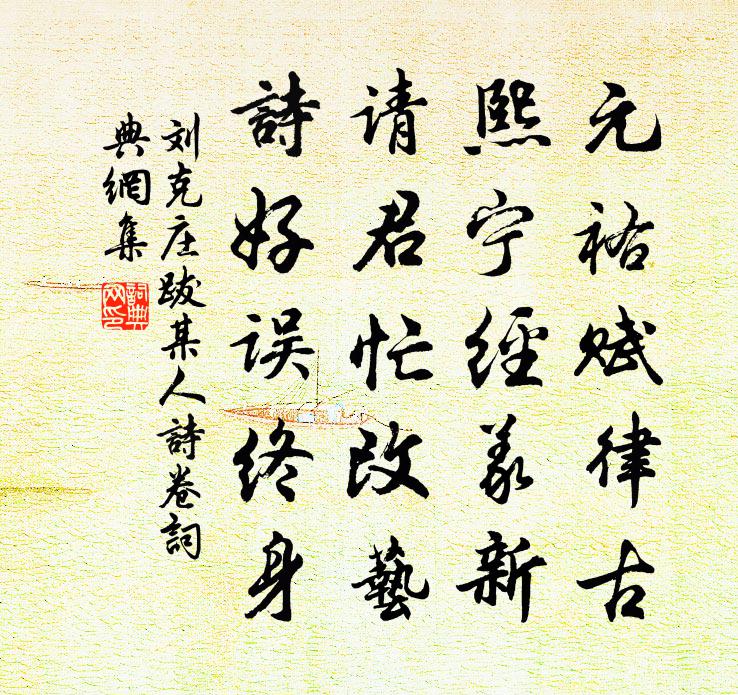 元祐赋律古
熙宁經義新
请君忙改藝
詩好误终身
刘克庄跋某人詩卷詞
典網集
詞典网印